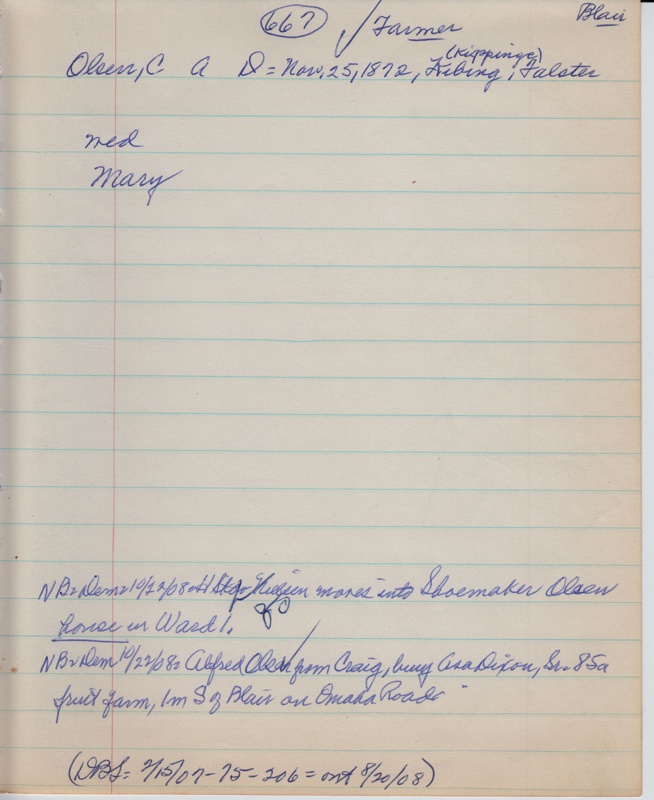 667 ✓ Farmer Blair
(Kippinge)
Olsen, C A D = Nov. 25, 1872, , Falster
med
Mary
NB = Dem = 10/22/08 = moves into Shoemaker Olsen
house in Ward 1.
NB = Dem 10/22/08 = Alfred Olsen from Craig, buys Asa Dixon, Sr. 85a
fruit farm, 1m S of Blair on Omaha Road
(DBS = /15/07 - 75 - 206 = out 8/20/08)